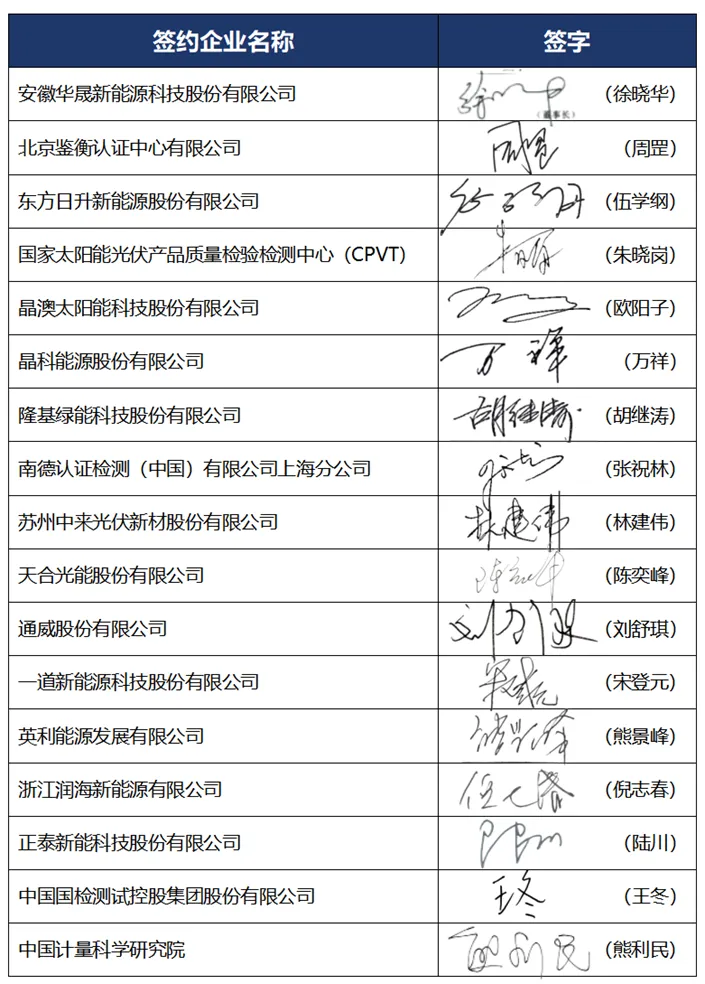 签约企业名称 签字
安徽华晟新能源科技股份有限公司 （董事长） （徐晓华）
北京鉴衡认证中心有限公司 周罡 （周罡）
东方日升新能源股份有限公司 （伍学纲）
国家太阳能光伏产品质量检验检测中心（CPVT） （朱晓岗）
晶澳太阳能科技股份有限公司 （欧阳子）
晶科能源股份有限公司 万祥 （万祥）
隆基绿能科技股份有限公司 胡继涛 （胡继涛）
南德认证检测（中国）有限公司上海分公司 （张祝林）
苏州中来光伏新材股份有限公司 林建伟 （林建伟）
天合光能股份有限公司 （陈奕峰）
通威股份有限公司 （刘舒琪）
一道新能源科技股份有限公司 宋登元 （宋登元）
英利能源发展有限公司 （熊景峰）
浙江润海新能源有限公司 （倪志春）
正泰新能科技股份有限公司 （陆川）
中国国检测试控股集团股份有限公司 王冬 （王冬）
中国计量科学研究院 熊利民 （熊利民）